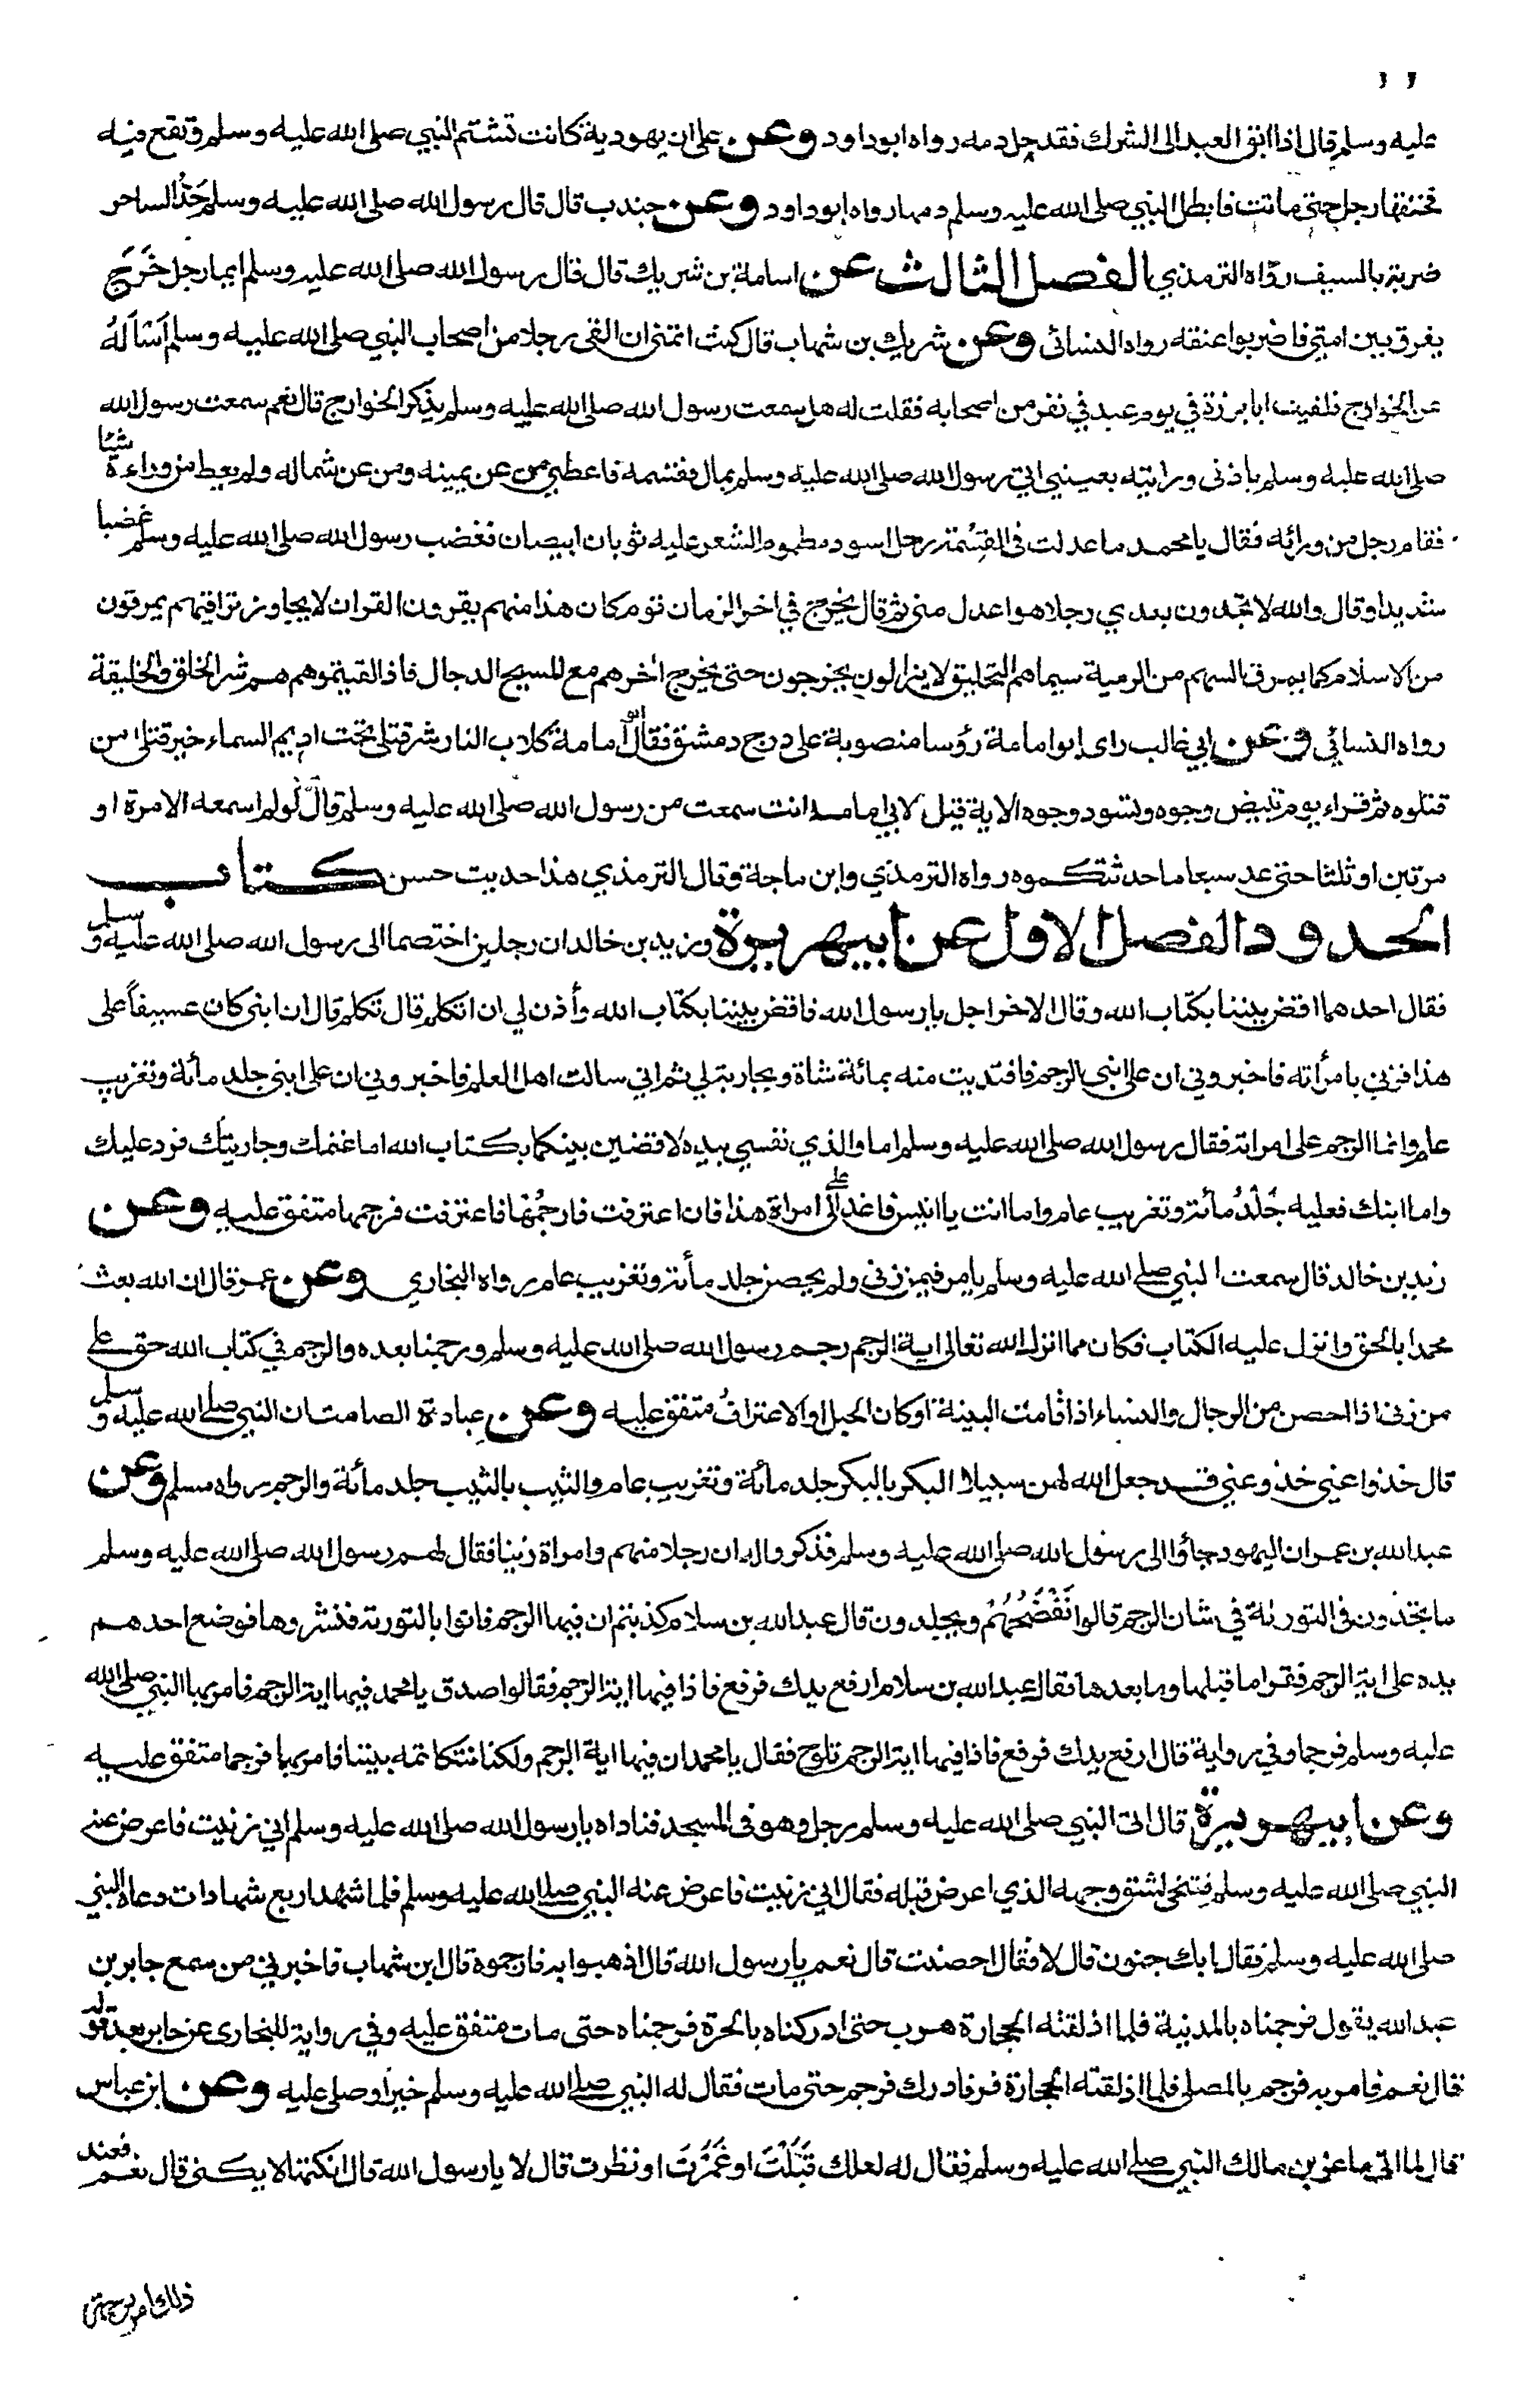 عليه وسلم قال اذا ابق العبد الى الشرك فقد حل دمه رواه ابو داود وعن على ان يهودية كانت تشتم النبي صلى الله عليه وسلم وتقع فيه
فخنقها رجل حتى ماتت فابطل النبي صلى الله عليه وسلم دمها رواه ابو داود وعن جندب قال قال رسول الله صلى الله عليه وسلم حَدُّ الساحر
ضربة بالسيف رواه الترمذي الفصل الثالث عن اسامة بن شريك قال قال رسول الله صلى الله عليه وسلم ايما رجل خَرَجَ
يفرق بين امتي فاضربوا عنقه رواه النسائى وعن شريك بن شهاب قال كنت اتمنى ان القى رجلا من اصحاب النبي صلى الله عليه وسلم اَسْاَلُهُ
عن الخوارج فلقيت ابا برزة في يوم عيد في نفر من اصحابه فقلت له هل سمعت رسول الله صلى الله عليه وسلم يذكر الخوارج قال نعم سمعت رسول الله
صلى الله عليه وسلم باذنى ورايته بعينيي اتي رسول الله صلى الله عليه وسلم بمال فقسمه فاعطى من عن يمينه ومن عن شماله ولم يعط من وراءه شيئا
فقام رجل من ورائه فقال يا محمد ما عدلت في القِسْمة رجل اسود مطموم الشعر عليه ثوبان ابيضان فغضب رسول الله صلى الله عليه وسلم غضبا
شديدا وقال والله لا تجدون بعدي رجلا هو اعدل منى ثم قال يخرج في اخر الزمان قوم كان هذا منهم يقرون القران لا يجاوز تراقيهم يمرقون
من الاسلام كما يمرق السهم من الرمية سيماهم التحليق لا يزالون يخرجون حتى يخرج اخرهم مع المسيح الدجال فاذا لقيتموهم هم شر الخلق والخليقة
رواه النسائي وعن ابي غالب راى ابو امامة رؤسا منصوبة على درج دمشق فقال ابو امامة كلاب النار شر قتلى تحت اديم السماء خير قتلى من
قتلوه ثم قراء يوم تبيض وجوه وتسود وجوه الاية قيل لابي امامة انت سمعت من رسول الله صلى الله عليه وسلم قال لو لم اسمعه الا مرة او
مرتين او ثلثا حتى عد سبعا ما حدثتكموه رواه الترمذي وابن ماجة وقال الترمذي هذا حديث حسن كتاب
الحدود الفصل الاول عن ابيهريرة وزيد بن خالد ان رجلين اختصما الى رسول الله صلى الله عليه وسلم
فقال احدهما اقض بيننا بكتاب الله وقال الاخر اجل يا رسول الله فاقض بيننا بكتاب الله وأذن لي ان اتكلم قال تكلم قال ان ابنى كان عسيفاً على
هذا فزني بامرأته فاخبروني ان على ابني الرجم فافتديت منه بمائة شاة وبجارية لي ثم اني سالت اهل العلم فاخبروني ان على ابني جلد مائة وتغريب
عام وانما الرجم على امراته فقال رسول الله صلى الله عليه وسلم اما والذي نفسي بيده لاقضين بينكما بكتاب الله اما غنمك وجاريتك فرد عليك
واما ابنك فعليه جَلْدُ مائة وتغريب عام واما انت يا انيس فاغد الى على امراة هذا فان اعترفت فارجُمْها فاعترفت فرجمها متفق عليه وعن
زيد بن خالد قال سمعت النبي صلى الله عليه وسلم يامر فيمن زنى ولم يحصن جلد مائة وتغريب عام رواه البخاري وعن عمر قال ان الله بعث
محمدا بالحق وانزل عليه الكتاب فكان مما انزل الله تعالى اية الرجم رجم رسول الله صلى الله عليه وسلم ورجمنا بعده والرجم في كتاب الله حق على
من زنى اذا احصن من الرجال والنساء اذا قامت البينة او كان الحبل او الاعترافُ متفق عليه وعن عبادة الصامت ان النبي صلى الله عليه وسلم
قال خذوا عني خذوا عني قد جعل الله لهن سبيلا البكر بالبكر جلد مائة وتغريب عام والثيب بالثيب جلد مائة والرجم رواه مسلم وعن
عبد الله بن عمر ان اليهود جاؤا الى رسول الله صلى الله عليه وسلم فذكروا له ان رجلا منهم وامراة زنيا فقال لهم رسول الله صلى الله عليه وسلم
ما تجدون في التورىة في شان الرجم قالوا نَفْضَحُهُمْ ويجلدون قال عبد الله بن سلام كذبتم ان فيها الرجم فاتوا بالتورية فنشروها فوضع احدهم
يده على اية الرجم فقرا ما قبلها وما بعدها فقال عبد الله بن سلام ارفع يدك فرفع فاذا فيها اية الرجم فقالوا صدق يا محمد فيها اية الرجم فامر بهما النبي صلى الله
عليه وسلم فرجما وفي رواية قال ارفع يدك فرفع فاذا فيها اية الرجم تلوح فقال يا محمد ان فيها اية الرجم ولكنا نتكاتمه بيننا فامر بهما فرجما متفق عليه
وعن ابيهريرة قال اتى النبي صلى الله عليه وسلم رجل وهو في المسجد فناداه يا رسول الله صلى الله عليه وسلم اني زنيت فاعرض عنه
النبي صلى الله عليه وسلم فتنحى لشق وجهه الذي اعرض قبله فقال اني زنيت فاعرض عنه النبي صلى الله عليه وسلم فلما شهد اربع شهادات دعاه النبي
صلى الله عليه وسلم فقال ابك جنون قال لا فقال احصنت قال نعم يا رسول الله قال اذهبوا به فارجموه قال ابن شهاب فاخبرني من سمع جابر بن
عبد الله يقول فرجمناه بالمدينة فلما اذلقته الحجارة هرب حتى ادركناه بالحرة فرجمناه حتى مات متفق عليه وفي رواية للبخارى عن جابر بعد قوله
قال نعم فامر به فرجم بالمصلى فلما اذلقته الحجارة فر فادرك فرجم حتى مات فقال له النبي صلى الله عليه وسلم خيرا وصلى عليه وعن ابن عباس
قال لما اتى ماعز بن مالك النبي صلى الله عليه وسلم فقال له لعلك قَبَّلْتَ او غَمَزْتَ او نظرت قال لا يا رسول الله قال انكتها لا يكنى قال نعم فعند
ذلك امر برجمه